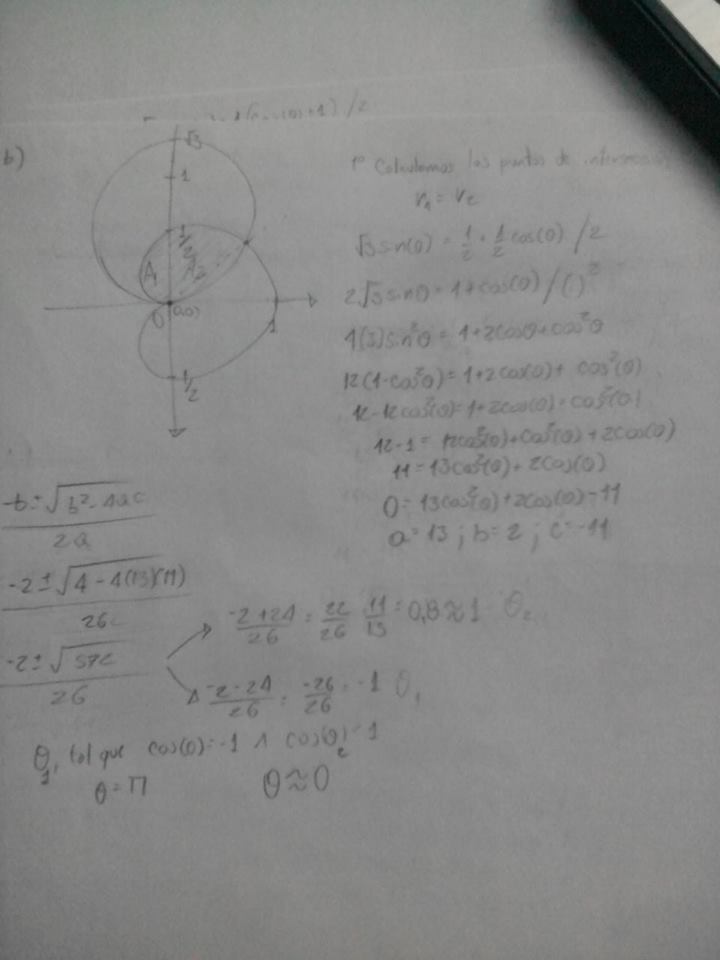 b)
√3
1
1/2
A₁
A₂
0
(0,0)
1
1/2
1º Calculamos los puntos de
r₁ = r₂
√3 sin(θ) = 1/2 + 1/2 cos(θ) /2
2√3 sinθ = 1+cos(θ) /( )²
4(3)sin²θ = 1+2cosθ+cos²θ
12(1-cos²θ) = 1+2cos(θ)+ cos²(θ)
12-12cos²(θ) = 1+2cos(θ)+cos²(θ)
12-1 = 12cos²(θ)+cos²(θ)+2cos(θ)
11 = 13cos²(θ)+2cos(θ)
0 = 13cos²(θ)+2cos(θ)-11
a=13 ; b=2 ; c=-11
-b ± √b²-4ac
2a
-2 ± √4-4(13)(11)
26
-2 ± √576
26
-2+24/26 = 22/26 = 11/13 = 0,8 ≈ 1 θ₂
-2-24/26 = -26/26 = -1 θ₁
θ₁, tal que cos(θ)=-1 ∧ cos(θ₂)=1
θ=π θ≈0